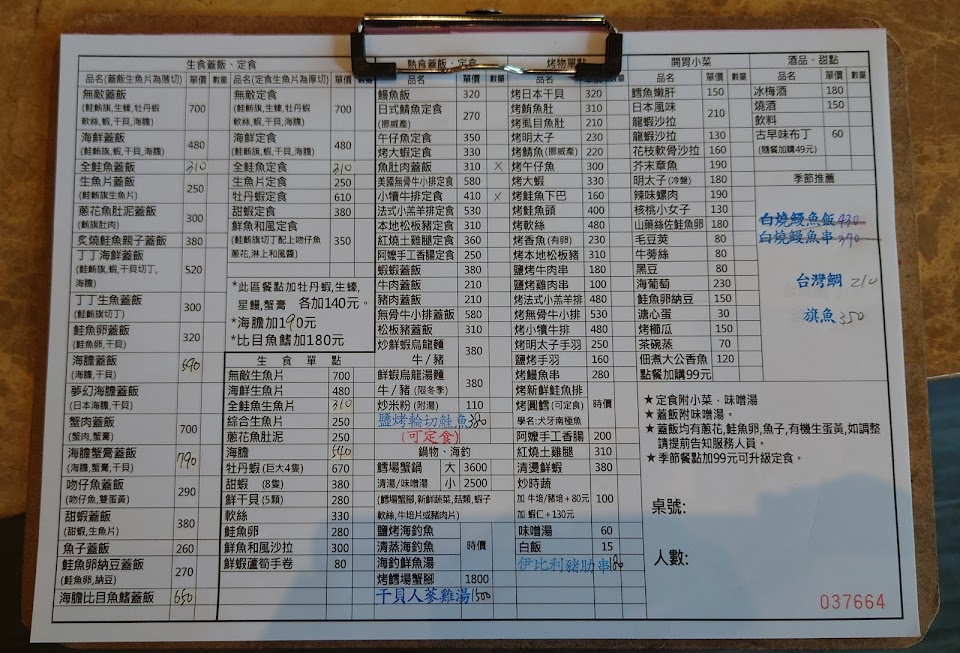 生食蓋飯、定食
品名(蓋飯生魚片為薄切) 單價 數量
無敵蓋飯
(鮭鮪旗,生蠔,牡丹蝦 700
軟絲,蝦,干貝,海膽)
海鮮蓋飯 480
(鮭鮪旗,蝦,干貝,海膽)
全鮭魚蓋飯 310
生魚片蓋飯 250
(鮭鮪旗生魚片)
蔥花魚肚泥蓋飯 300
(鮪旗肚肉)
炙燒鮭魚親子蓋飯 380
丁丁海鮮蓋飯
(鮭鮪旗,蝦,干貝切丁, 520
海膽)
丁丁生魚蓋飯 300
(鮭鮪旗切丁)
鮭魚卵蓋飯 320
(鮭魚卵,干貝)
海膽蓋飯 590
(海膽,干貝)
夢幻海膽蓋飯
(日本海膽,干貝)
蟹肉蓋飯 700
(蟹肉,蟹膏)
海膽蟹膏蓋飯 790
(海膽,蟹膏,干貝)
吻仔魚蓋飯 290
(吻仔魚,雙蛋黃)
甜蝦蓋飯 380
(甜蝦,生魚片)
魚子蓋飯 260
鮭魚卵納豆蓋飯 270
(鮭魚卵,納豆)
海膽比目魚鰭蓋飯 650
品名(定食生魚片為厚切) 單價 數量
無敵定食
(鮭鮪旗,生蠔,牡丹蝦 700
軟絲,蝦,干貝,海膽)
海鮮定食 480
(鮭鮪旗,蝦,干貝,海膽)
全鮭魚定食 310
生魚片定食 250
牡丹蝦定食 610
甜蝦定食 380
鮮魚和風定食
(鮭鮪旗切丁配上吻仔魚 350
蔥花,淋上和風醬)
*此區餐點加牡丹蝦,生蠔,
星鰻,蟹膏 各加140元。
*海膽加190元
*比目魚鰭加180元
生食單點
無敵生魚片 700
海鮮生魚片 480
全鮭魚生魚片 310
綜合生魚片 250
蔥花魚肚泥 250
海膽 540
牡丹蝦(巨大4隻) 670
甜蝦 (8隻) 380
鮮干貝(5顆) 280
軟絲 330
鮭魚卵 280
鮮魚和風沙拉 300
鮮蝦蘆筍手卷 80
熟食蓋飯、定食
品名 單價 數量
鰻魚飯 320
日式鯖魚定食 270
(挪威產)
午仔魚定食 350
烤大蝦定食 330
魚肚肉蓋飯 310 ×
美國無骨牛小排定食 580
小犢牛排定食 410 ×
法式小羔羊排定食 530
本地松板豬定食 310
紅燒土雞腿定食 360
阿嬤手工香腸定食 250
蝦蝦蓋飯 380
牛肉蓋飯 210
豬肉蓋飯 210
無骨牛小排蓋飯 580
松板豬蓋飯 310
炒鮮蝦烏龍麵 380
牛/豬
鮮蝦烏龍湯麵 380
牛/豬 (限冬季)
炒米粉(附湯) 110
鹽烤輪切鮭魚 380
(可定食)
鍋物、海釣
鱈場蟹鍋 大 3600
清湯/味噌湯 小 2500
(鱈場蟹腳,新鮮蔬菜,菇類,蝦子
軟絲,牛培片或豬肉片)
鹽烤海釣魚
清蒸海釣魚 時價
海釣鮮魚湯
烤鱈場蟹腳 1800
干貝人蔘雞湯 1500
烤物單點
品名 單價 數量
烤日本干貝 320
烤鮪魚肚 310
烤虱目魚肚 210
烤明太子 230
烤鯖魚(挪威產) 220
烤午仔魚 300
烤大蝦 330
烤鮭魚下巴 160
烤鮭魚頭 400
烤軟絲 480
烤香魚(有卵) 230
烤本地松板豬 310
鹽烤牛肉串 180
鹽烤雞肉串 100
烤法式小羔羊排 480
烤無骨牛小排 530
烤小犢牛排 480
烤明太子手羽 250
鹽烤手羽 160
烤鰻魚串 280
烤新鮮鮭魚排
烤圓鱈(可定食) 時價
學名:犬牙南極魚
阿嬤手工香腸 200
紅燒土雞腿 310
清燙鮮蝦 380
炒時蔬
加 牛培/豬培+80元 100
加 蝦仁+130元
味噌湯 60
白飯 15
伊比利豬肋串 180
開胃小菜
品名 單價 數量
鱈魚嫩肝 150
日本風味 210
龍蝦沙拉
龍蝦沙拉 130
花枝軟骨沙拉 160
芥末章魚 190
明太子(冷盤) 180
辣味螺肉 190
核桃小女子 130
山藥絲佐鮭魚卵 180
毛豆莢 80
牛蒡絲 80
黑豆 80
海葡萄 230
鮭魚卵納豆 150
溏心蛋 30
烤櫛瓜 150
茶碗蒸 70
佃煮大公香魚 120
點餐加購99元
酒品、甜點
品名 單價 數量
冰梅酒 180
燒酒 150
飲料
古早味布丁 60
(隨餐加購49元)
季節推薦
白燒鰻魚飯 430
白燒鰻魚串 390
台灣鯛 210
旗魚 350
★定食附小菜，味噌湯
★蓋飯附味噌湯。
★蓋飯均有蔥花,鮭魚卵,魚子,有機生蛋黃,如調整
請提前告知服務人員。
★季節餐點加99元可升級定食。
桌號:
人數:
037664